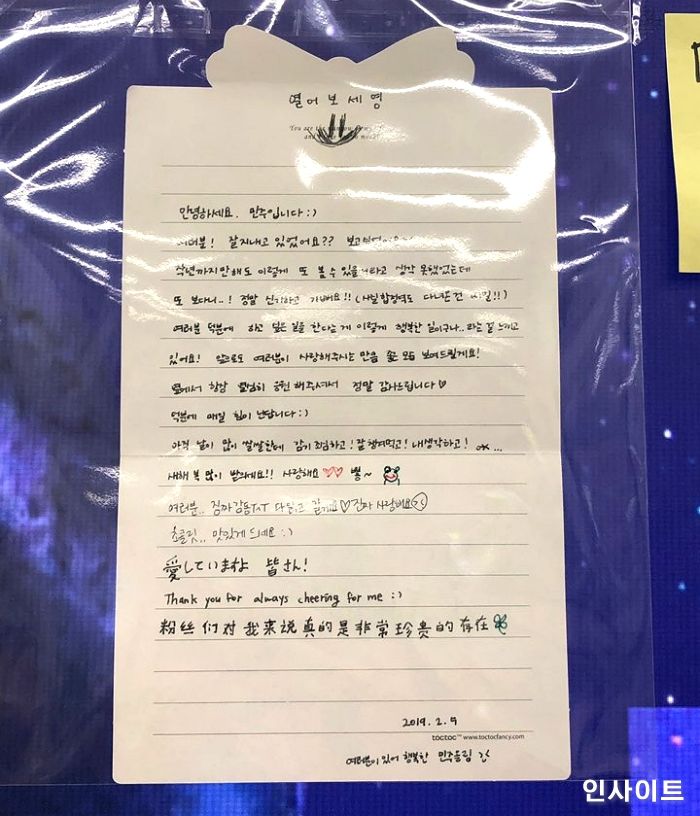 열어보세영
You are the
안녕하세요. 민주입니다:)
여러분! 잘지내고 있었어요??
작년까지만해도 이렇게 또 볼 수 있을거라고 생각 못했었는데
또 보다니..! 정말 신기하고 기뻐요!! (사실 합정역도 다녀온건 비밀!!)
여러분 덕분에 하고 싶은 일을 한다는게 이렇게 행복한 일이구나..라는걸 느끼고
있어요! 앞으로도 여러분이 사랑해주시는 만큼 보여드릴게요!
옆에서 항상 열심히 응원해주셔서 정말 감사드립니다♡
덕분에 매일 힘이 난답니다:)
아직 날이 많이 쌀쌀한데 감기 조심하고! 잘 챙겨먹고! 내생각하고! ok...
새해 복 많이 받으세요!! 사랑해요♡♡ 뿅~
여러분.. 진짜감동TxT 다 읽고 갈게요♡진짜 사랑해요
초콜릿.. 맛있게 드세요:)
愛していますよ 皆さん!
Thank you for always cheering for me :)
粉丝们对我来说真的是非常珍贵的存在
2019. 2. 9
toctoc™ www.toctocfancy.com
여러분이 있어 행복한 민주올림
인사이트